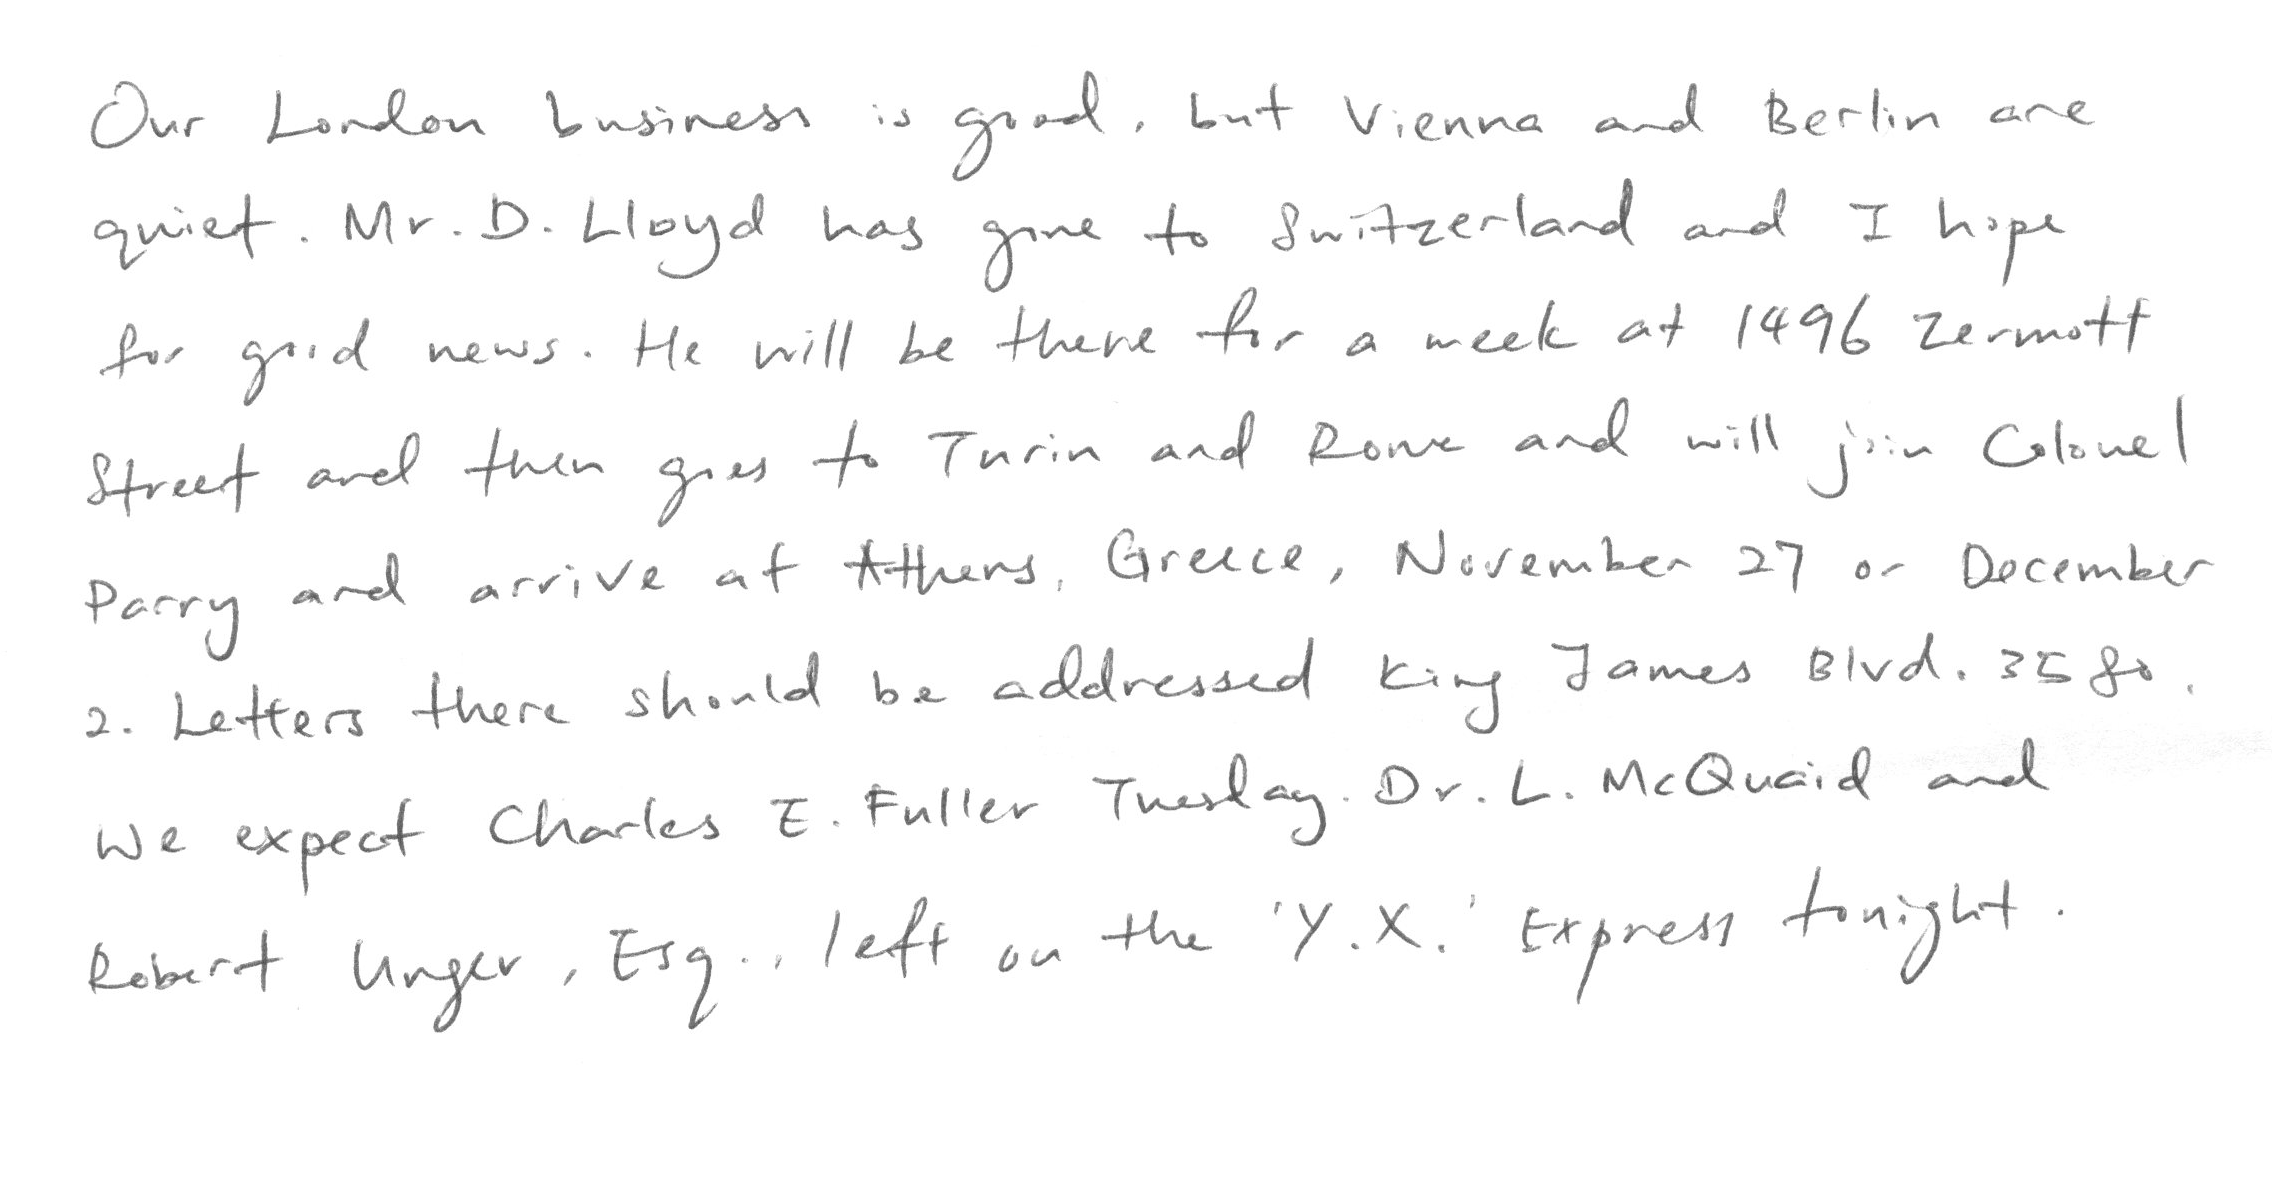 Our London business is good, but Vienna and Berlin are
quiet. Mr. D. Lloyd has gone to Switzerland and I hope
for good news. He will be there for a week at 1496 Zermott
Street and then goes to Turin and Rome and will join Colonel
Parry and arrive at Athens, Greece, November 27 or December
2. Letters there should be addressed King James Blvd. 3580.
We expect Charles E. Fuller Tuesday. Dr. L. McQuaid and
Robert Unger, Esq., left on the 'Y.X.' Express tonight.